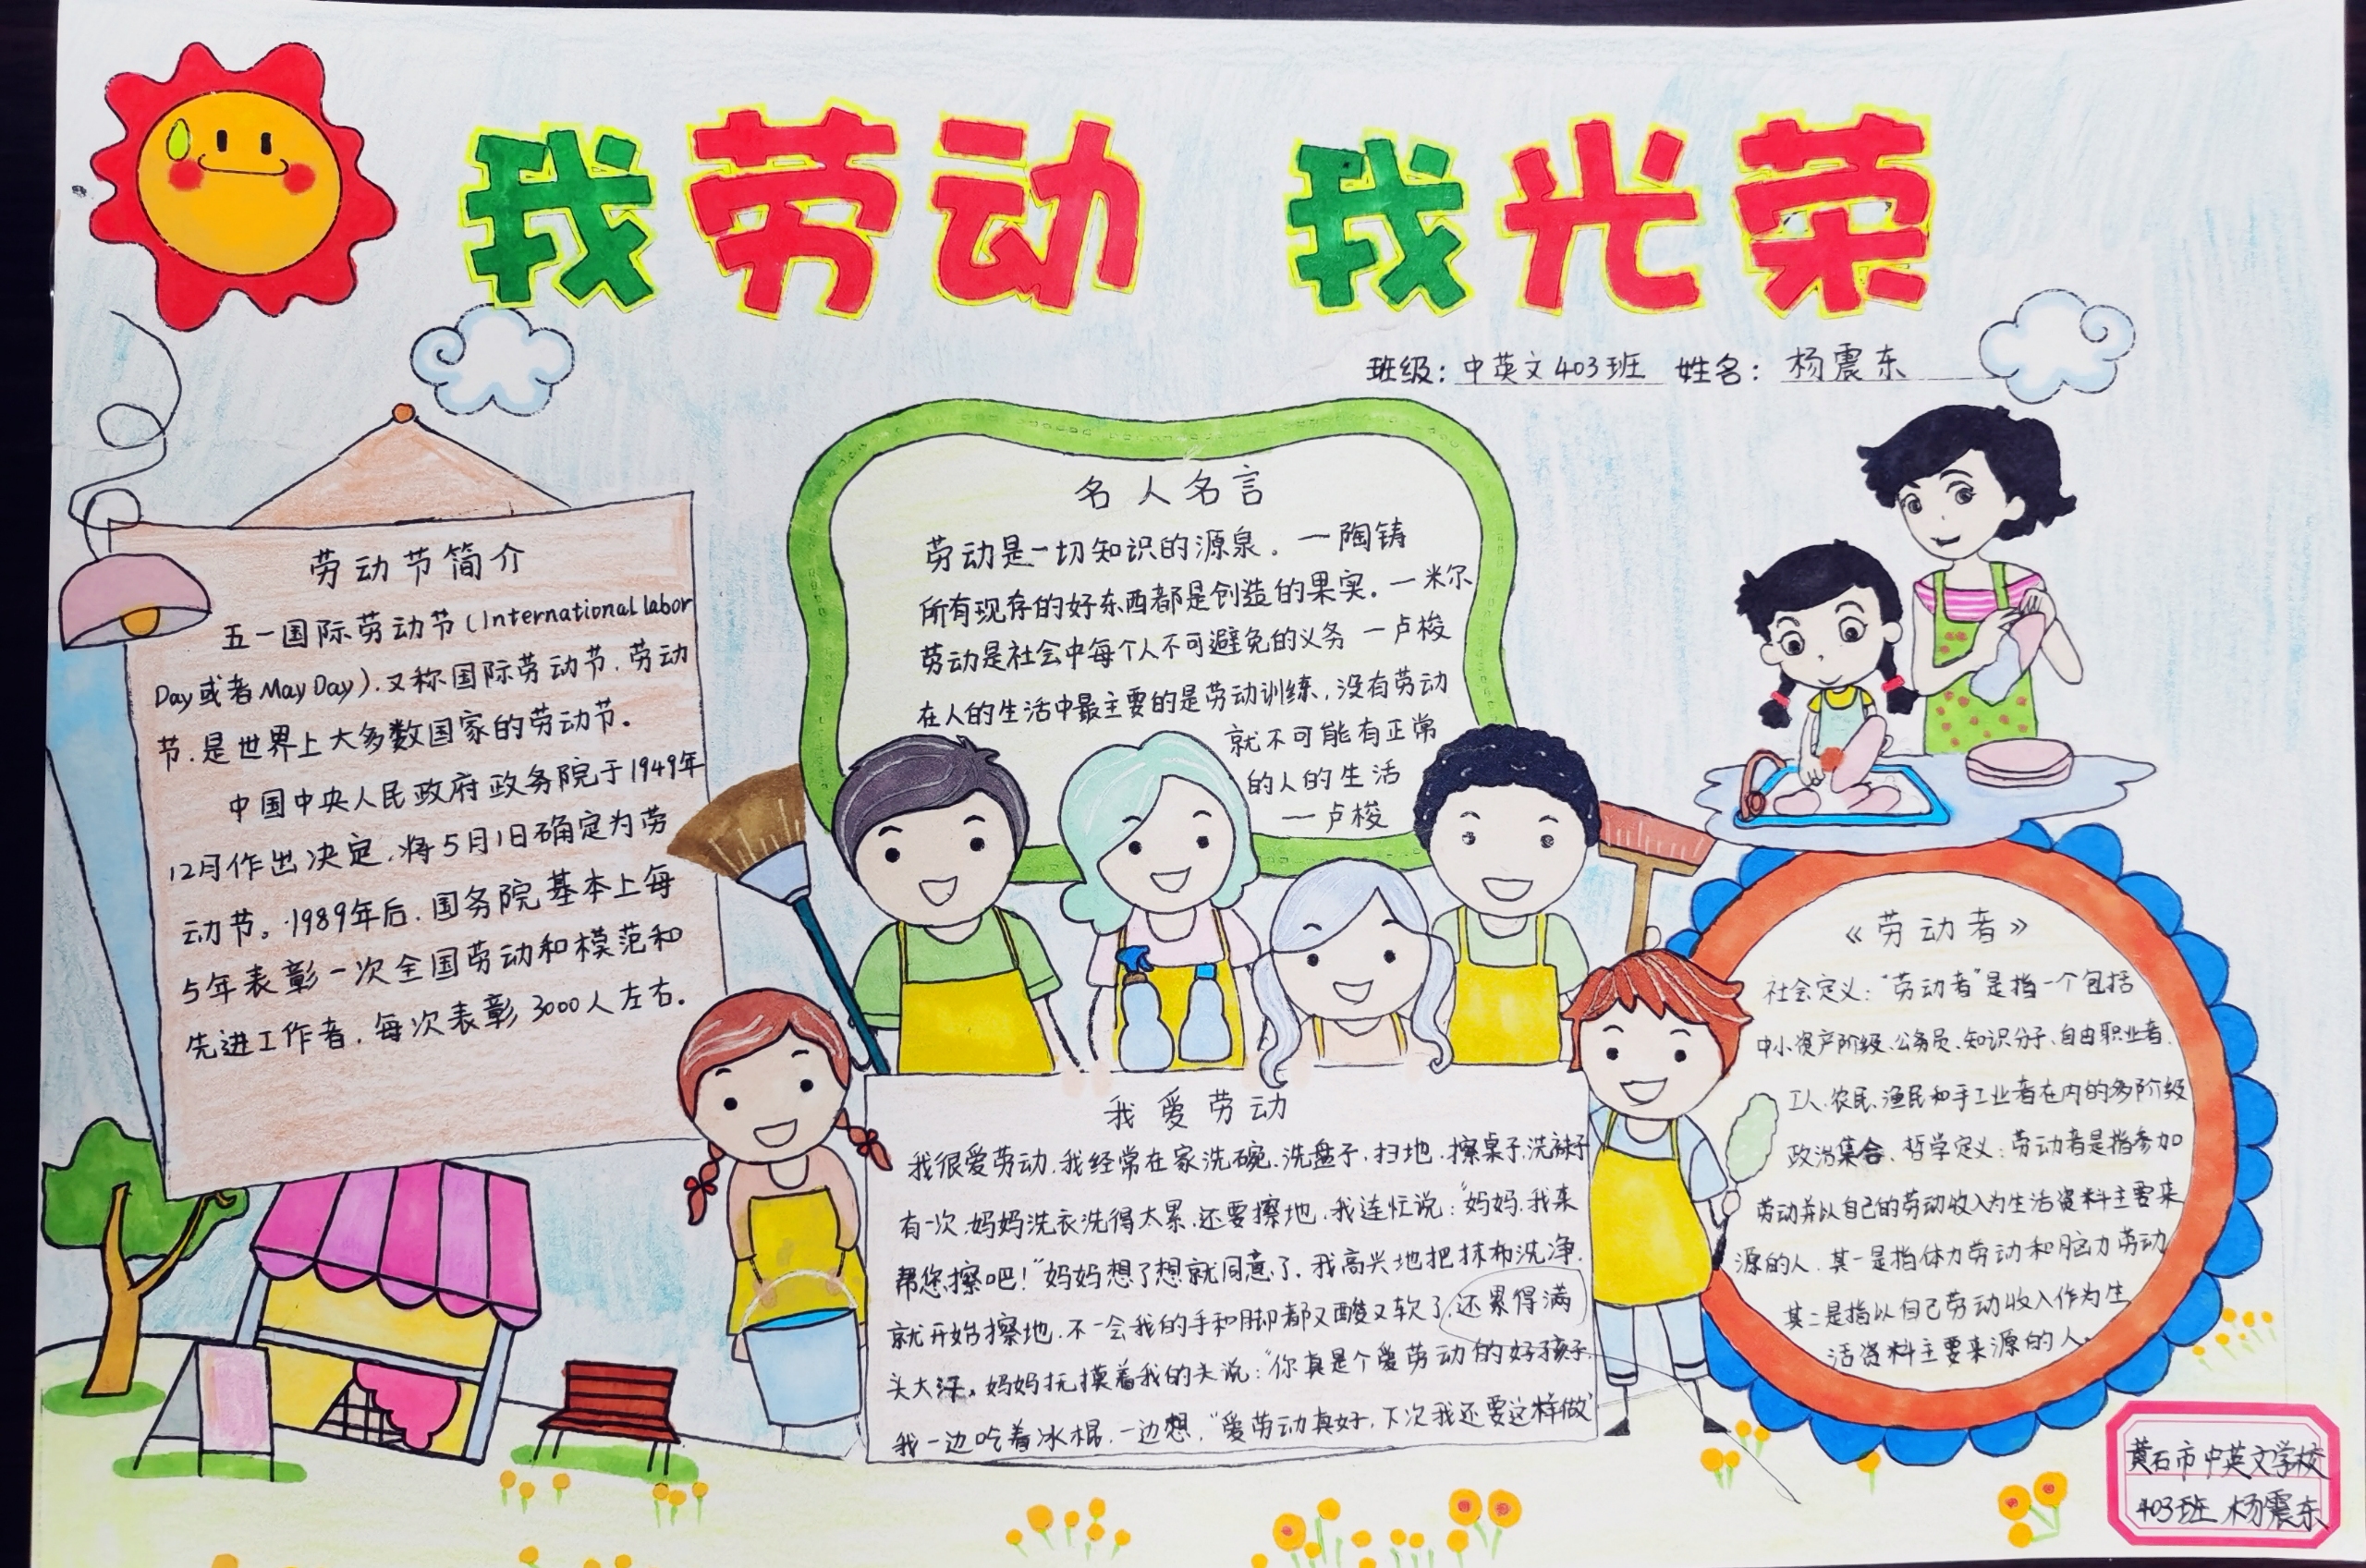 我劳动 我光荣
班级：中英文403班 姓名：杨震东
劳动节简介
五一国际劳动节（International labor
Day或者May Day）.又称国际劳动节.劳动
节.是世界上大多数国家的劳动节。
中国中央人民政府政务院于1949年
12月作出决定.将5月1日确定为劳
动节。1989年后.国务院基本上每
5年表彰一次全国劳动和模范和
先进工作者.每次表彰3000人左右.
名人名言
劳动是一切知识的源泉。—陶铸
所有现存的好东西都是创造的果实.—米尔
劳动是社会中每个人不可避免的义务 —卢梭
在人的生活中最主要的是劳动训练,没有劳动
就不可能有正常
的人的生活
—卢梭
我爱劳动
我很爱劳动.我经常在家洗碗.洗盘子.扫地.擦桌子.洗袜子
有一次.妈妈洗衣洗得太累.还要擦地.我连忙说："妈妈.我来
帮您擦吧！"妈妈想了想就同意了.我高兴地把抹布洗净.
就开始擦地.不一会我的手和脚都又酸又软了.还累得满
头大汗。妈妈抚摸着我的头说："你真是个爱劳动的好孩子.
我一边吃着冰棍.一边想."爱劳动真好.下次我还要这样做"
《劳动者》
社会定义："劳动者"是指一个包括
中小资产阶级.公务员.知识分子.自由职业者.
工人.农民.渔民和手工业者在内的多阶级
政治集合.哲学定义：劳动者是指参加
劳动并以自己的劳动收入为生活资料主要来
源的人.其一是指体力劳动和脑力劳动
其二是指以自己劳动收入作为生
活资料主要来源的人.
黄石市中英文学校
403班 杨震东